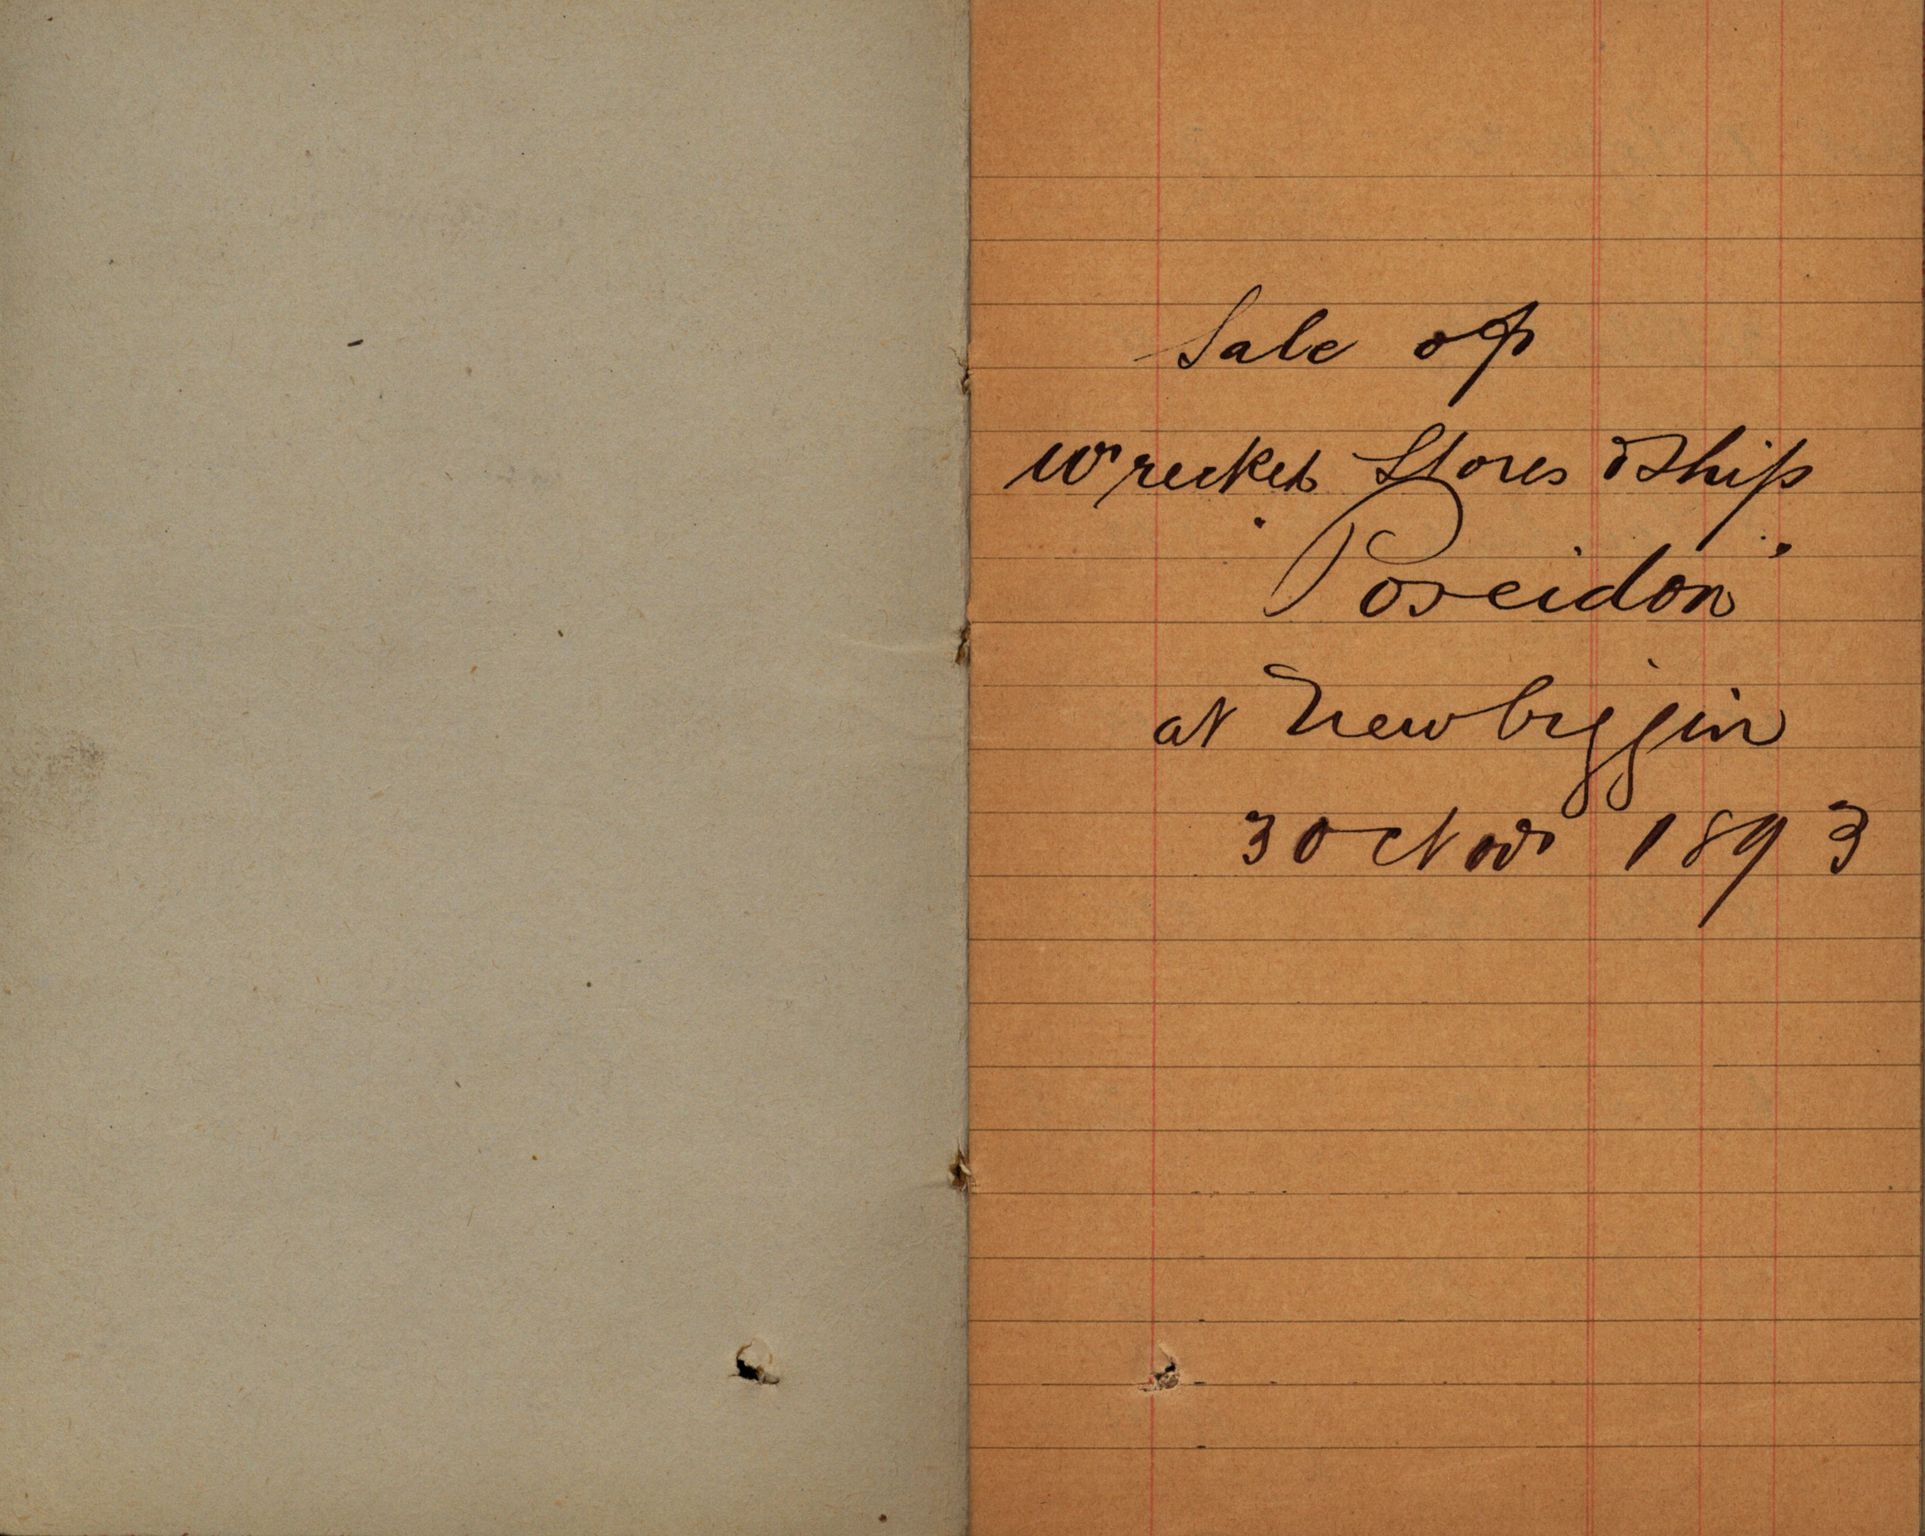 Sale of
Wrecked Stores & Ship
"Poseidon"
at Newbiggin
30 Nov 1893